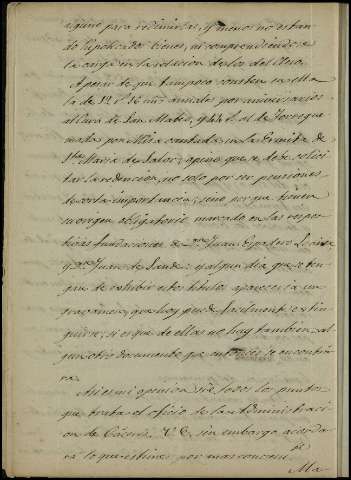 alguno para redimirlas, y menos no estan-
do hipotecados bienes, ni comprendiendose
la carga en la relacion de los del Clero.
A pesar de que tampoco consten en ella
la de 12 r. 16 mrs anuales por aniversarios
al Cura de San Mateo, y 44 r. al de Torreque-
mada por Misa cantada en la Ermita de
Sta Maria de Salor; opino que se debe solici-
tar la redencion, no solo por ser pensiones
de corta importancia, sino porque tienen
su origen obligatorio marcado en las respec-
tivas fundaciones de Dn Juan
y Dn Juan de Sande; y algun dia que se ten-
gan de exhibir estos titulos aparecerá un
gravamen, que hoy puede facilmente extin-
guirse, si es que de ellas no hay tambien al-
gun otro documento que entonces se encontra-
ra.
Asi es mi opinion sre. todos los puntos
que trata el oficio de la Administraci-
on de Cáceres. V.E. sin embargo acorda-
rá lo que estime por mas conveni-
Ma-